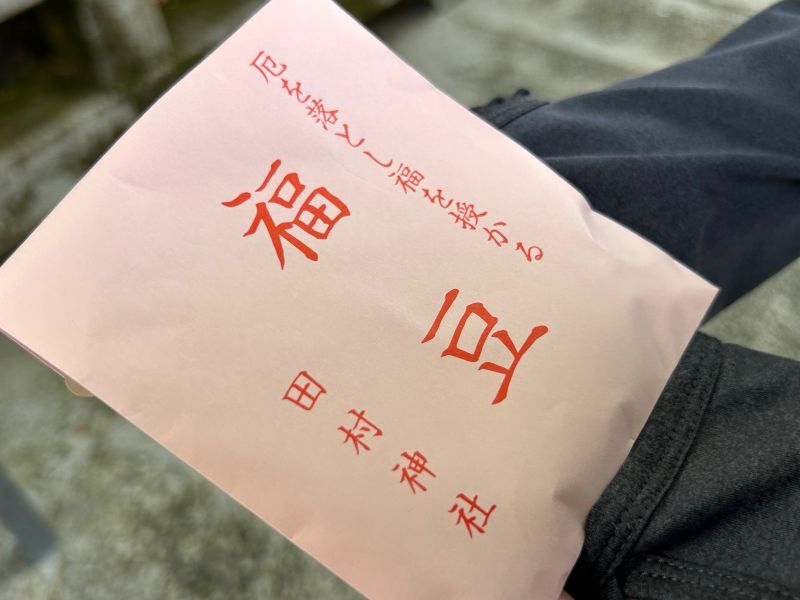 厄を落とし福を授かる
福豆
田村神社